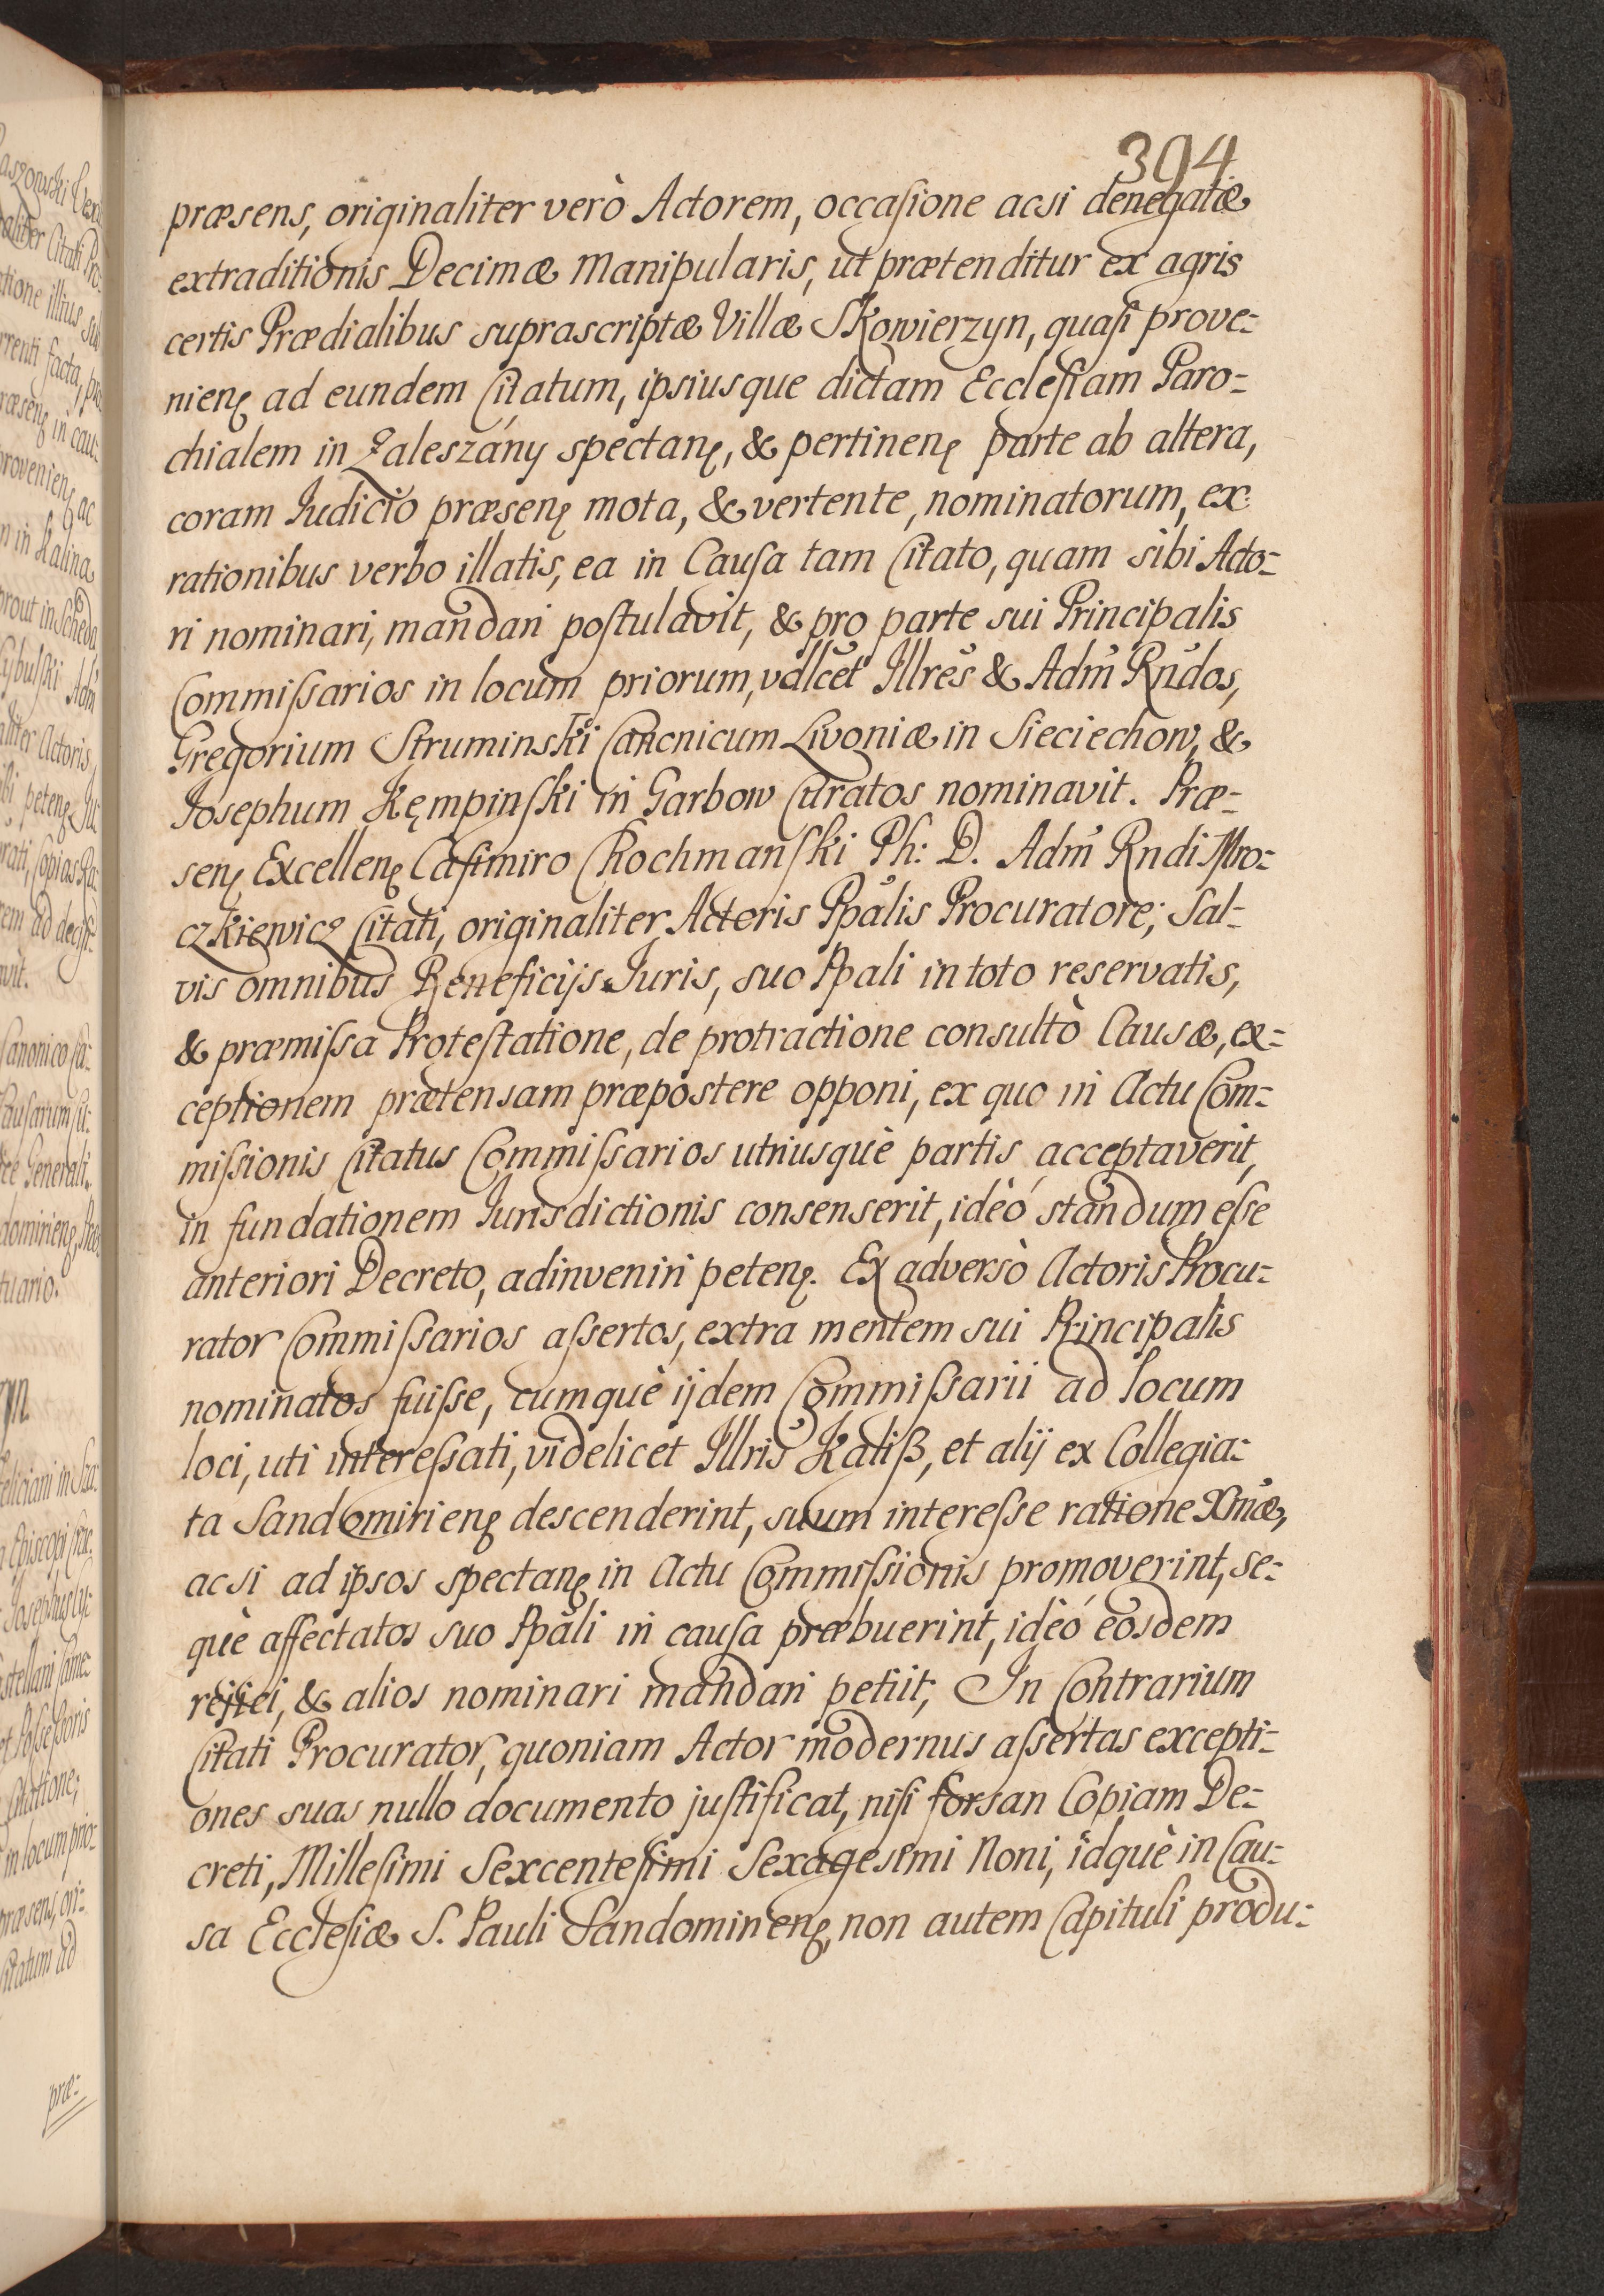 394
præsens, originaliter verò Actorem, occasione acsi denegatæ
extraditionis Decimæ Manipularis, ut prætenditur ex agris
certis Prædialibus suprascriptæ Villæ Skowierzyn, quasi prove=
nienȩ ad eundem Citatum, ipsiusque dictam Ecclesiam Paro=
chialem in Zaleszány spectanȩ, & pertinenȩ parte ab altera,
coram Iudicio præsenȩ mota, & vertente, nominatorum, ex
rationibus verbo illatis, ea in Causa tam Citato, quam sibi Acto=
ri nominari, mandari postulavit, & pro parte sui Principalis
Commissarios in locum priorum, vdlcet Illres & Adm Rndos,
Gregorium Struminski Canonicum Livoniæ in Sieciechow, &
Josephum Kępinski in Garbow Curatos nominavit. Præ=
senȩ Excellenȩ Casimiro Chochmanski Ph: D. Adm Rndi Mro=
czkiewicz Citati, originaliter Actoris Ppalis Procuratore; Sal=
vis omnibus Beneficijs Iuris, suo Ppali in toto reservatis,
& præmissa Protestatione, de protractione consultò Causæ, ex=
ceptionem prætensam præpostere opponi, ex quo in Actu Com=
missionis Citatus Commissarios utriusquè partis acceptaverit,
in fundationem Iurisdictionis consenserit, ideò standum esse
anteriori Decreto, adinveniri petenȩ. Ex adversò Actoris Procu=
rator Commissarios assertos, extra mentem sui Principalis
nominatos fuisse, cumquè ijdem Commissarii ad locum
loci, uti interessati, videlicet Illris Kaliß, et alij ex Collegia=
ta Sandomirienȩ descenderint, suum interesse ratione Xmæ,
acsi ad ipsos spectanȩ in Actu Commissionis promoverint, se=
què affectatos suo Ppali in causa præbuerint, ideó eosdem
rejici, & alios nominari mandari petiit; In Contrarium
Citati Procurator, quoniam Actor modernus assertas excepti=
ones suas nullo documento justificat, nisi forsan Copiam De=
creti, Millesimi Sexcentesimi Sexagesimi Noni, idquè in Cau=
sa Ecclesiæ S. Pauli Sandomirienȩ, non autem Capituli produ=